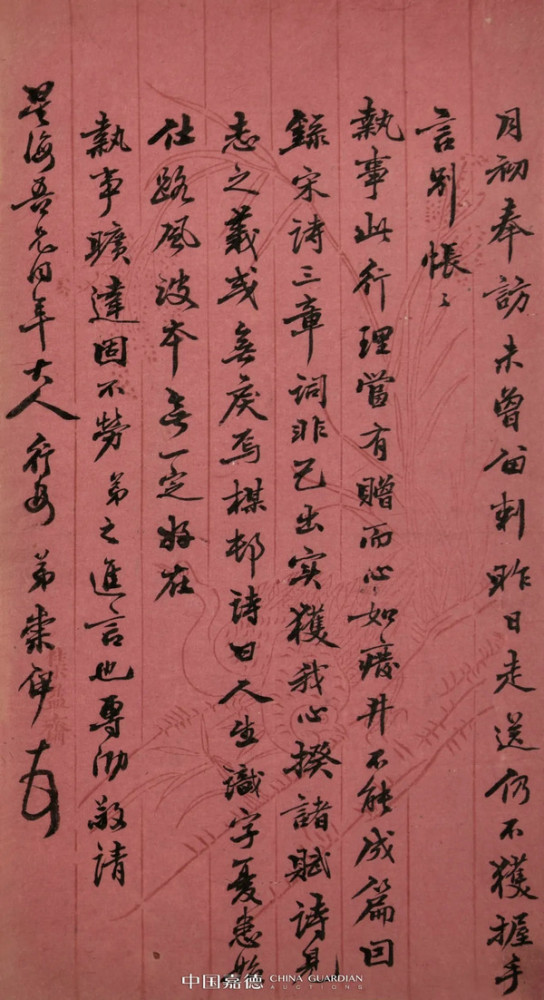 月初奉訪未曾留刺昨日走送仍不獲握手
言別悵〻
執事此行理當有贈而心如癈井不能成篇因
錄宋詩三章詞非己出實獲我心揆諸賦詩見
志之義或無戾焉楳邨詩曰人生識字憂患始
仕路風波本無一定好在
執事曠達固不勞弟之進言也專泐敬請
星海吾兄同年大人行安 弟崇伊
中国嘉德 CHINA GUARDIAN
AUCTIONS